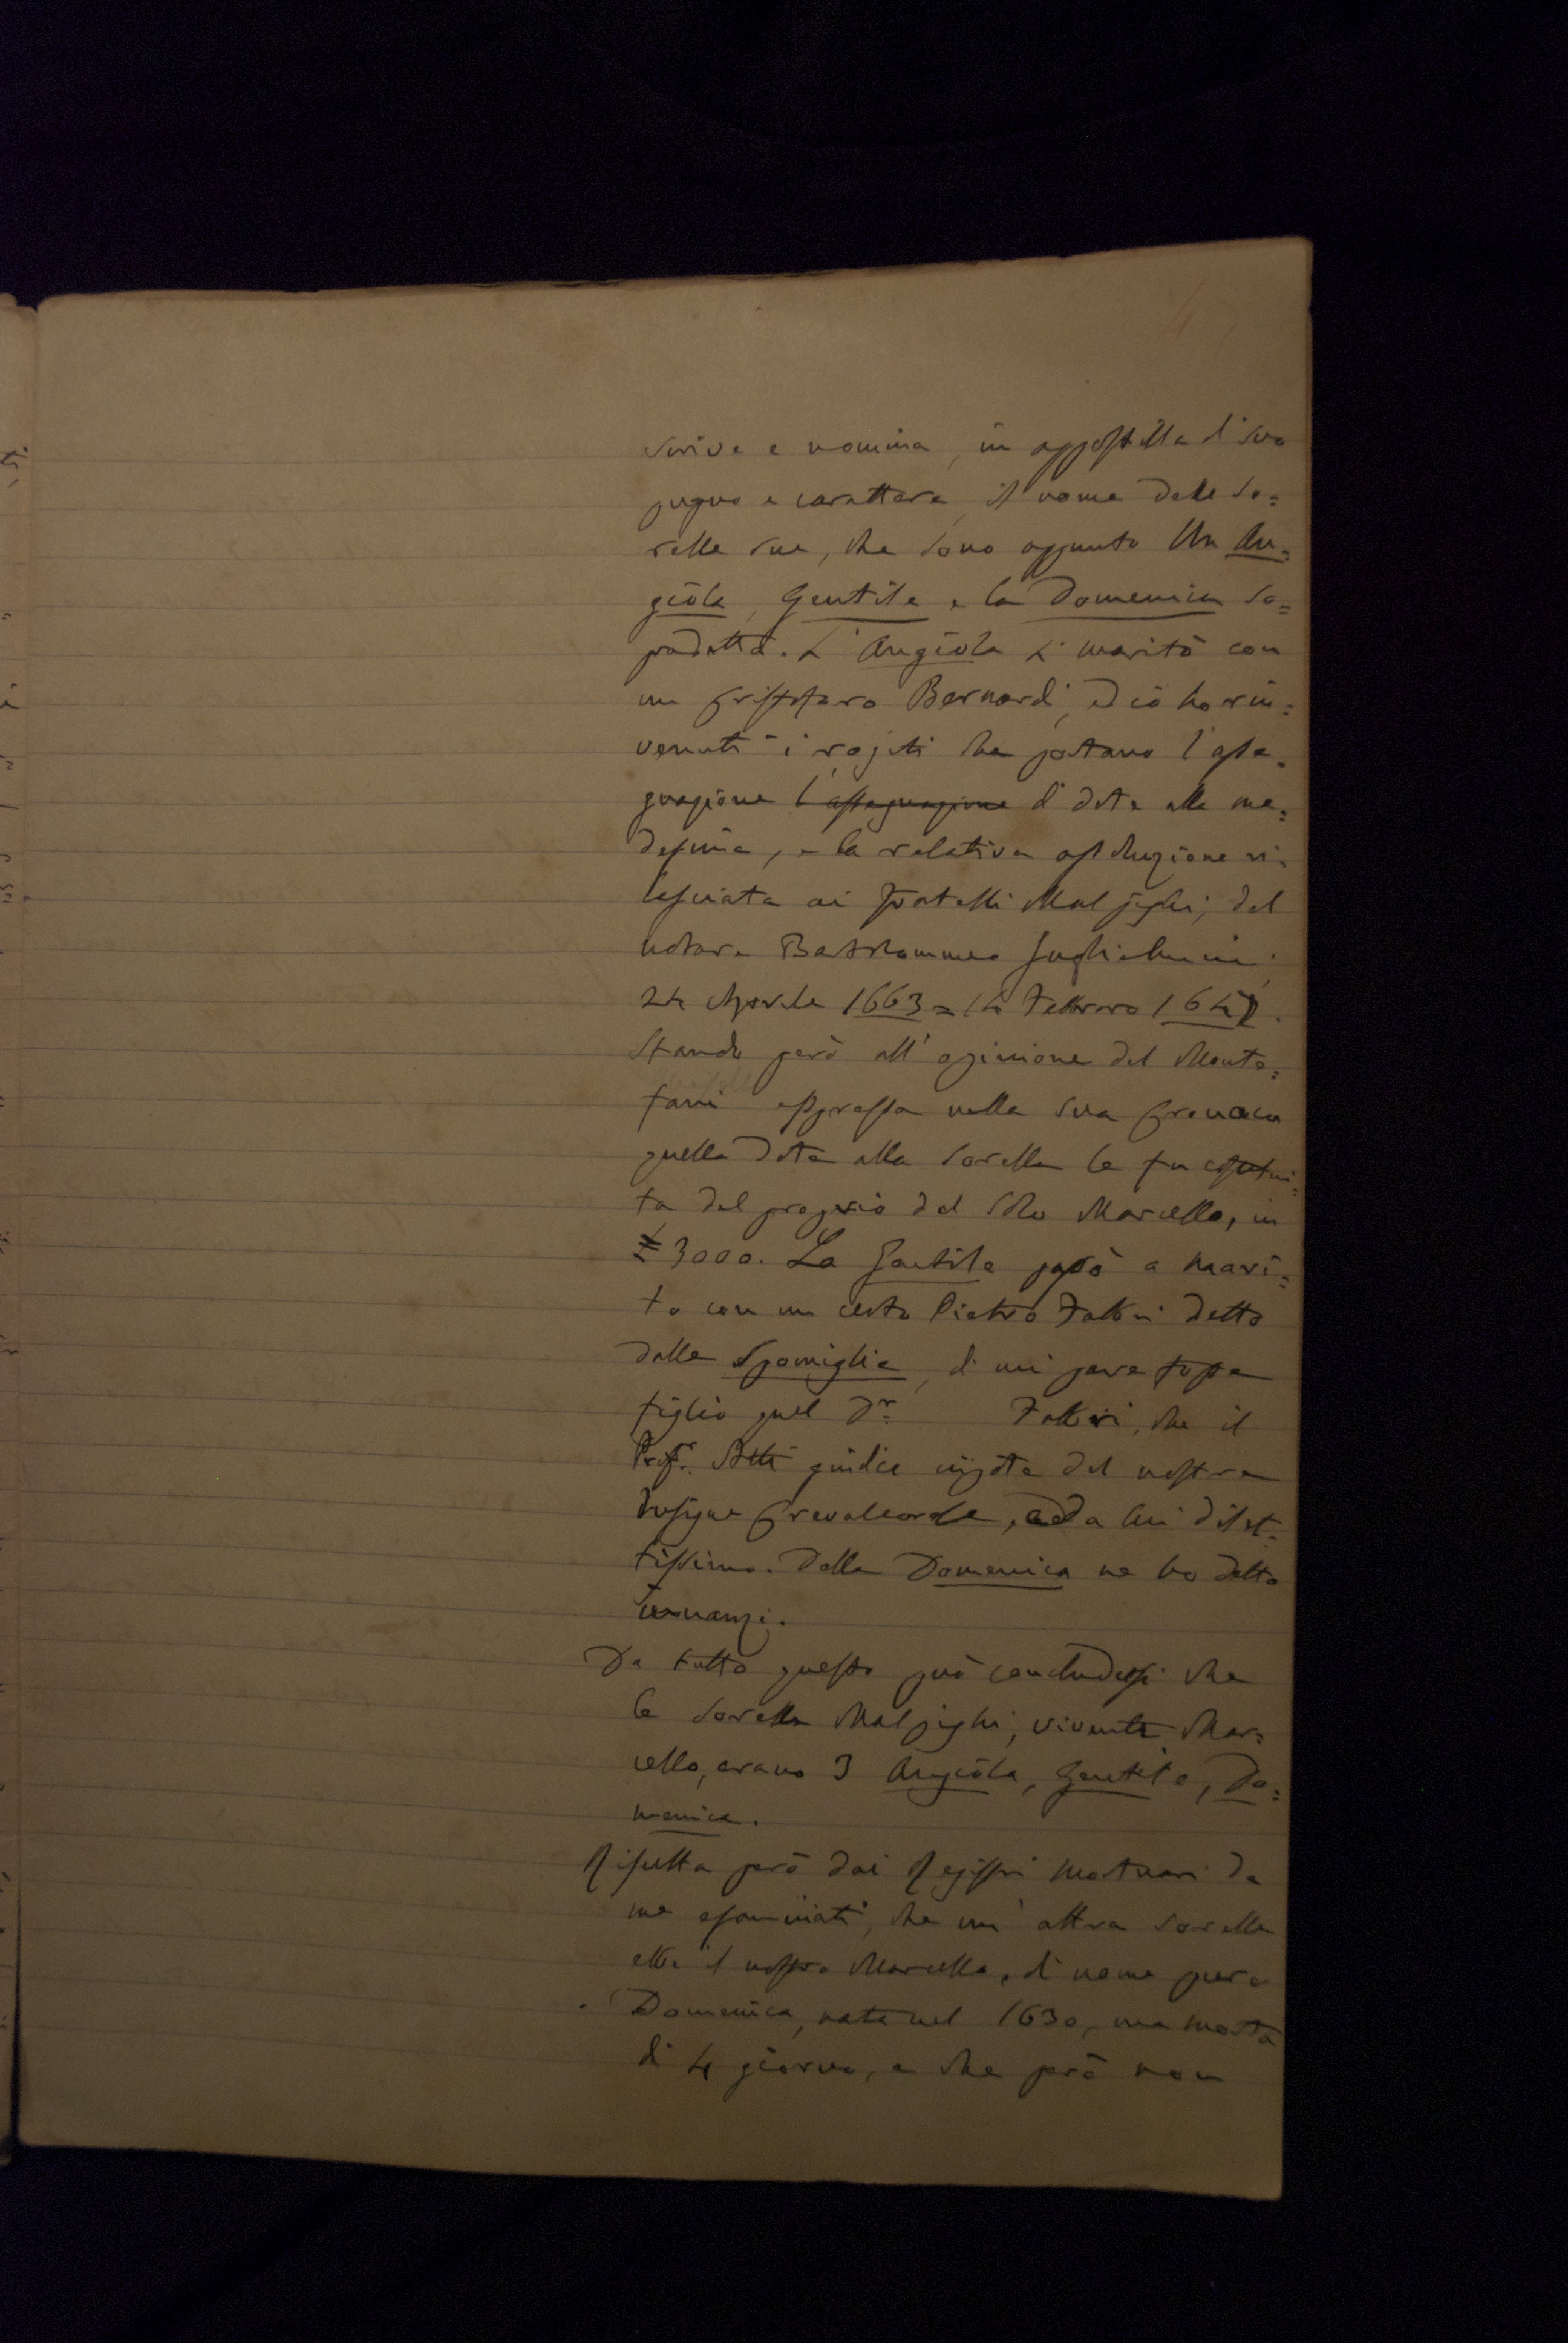 47
scrive e nomina, in appostilla di suo
pugno e carattere, il nome delle so=
relle sue, che sono appunto Un An=
giola, Gentile e la Domenica so=
pradetta. L'Angiola si maritò con
un Cristofaro Bernardi, ed io ho rin=
venuti i rogiti che portano l'asse=
gnazione l'assegnazione di dote alla me=
desima, e la relativa assoluzione ri=
lasciata ai fratelli Malpighi, del
notare Bartolommeo Guglielmini;
24 Aprile 1663 = 14 Febbraro 164
Stando però all'opinione del Monte=
fani espressa nella sua Cronaca
quella dote alla sorella le fu costitui=
ta del proprio dal solo Marcello, in
£ 3000. La Gentile passò a mari=
to con un certo Pietro Fabbri detto
dalle Spomiglie, di cui pare fosse
figlio quel Dr. Fabbri, che il
Prof. Atti giudice nipote del nostro
insigne Crevalcorese, e da lui dilet=
tissimo. Della Domenica ne ho detto
innanzi.
Da tutto questo può concludersi che
le sorelle Malpighi, vivente Mar=
cello, erano 3 Angiola, Gentile, Do=
menica.
Risulta però dai Registri mortuari da
me esaminati, che un'altra sorella
ebbe il nostro Marcello, di nome pure
Domenica, nata nel 1630, ma morta
di 4 giorni, e che però non